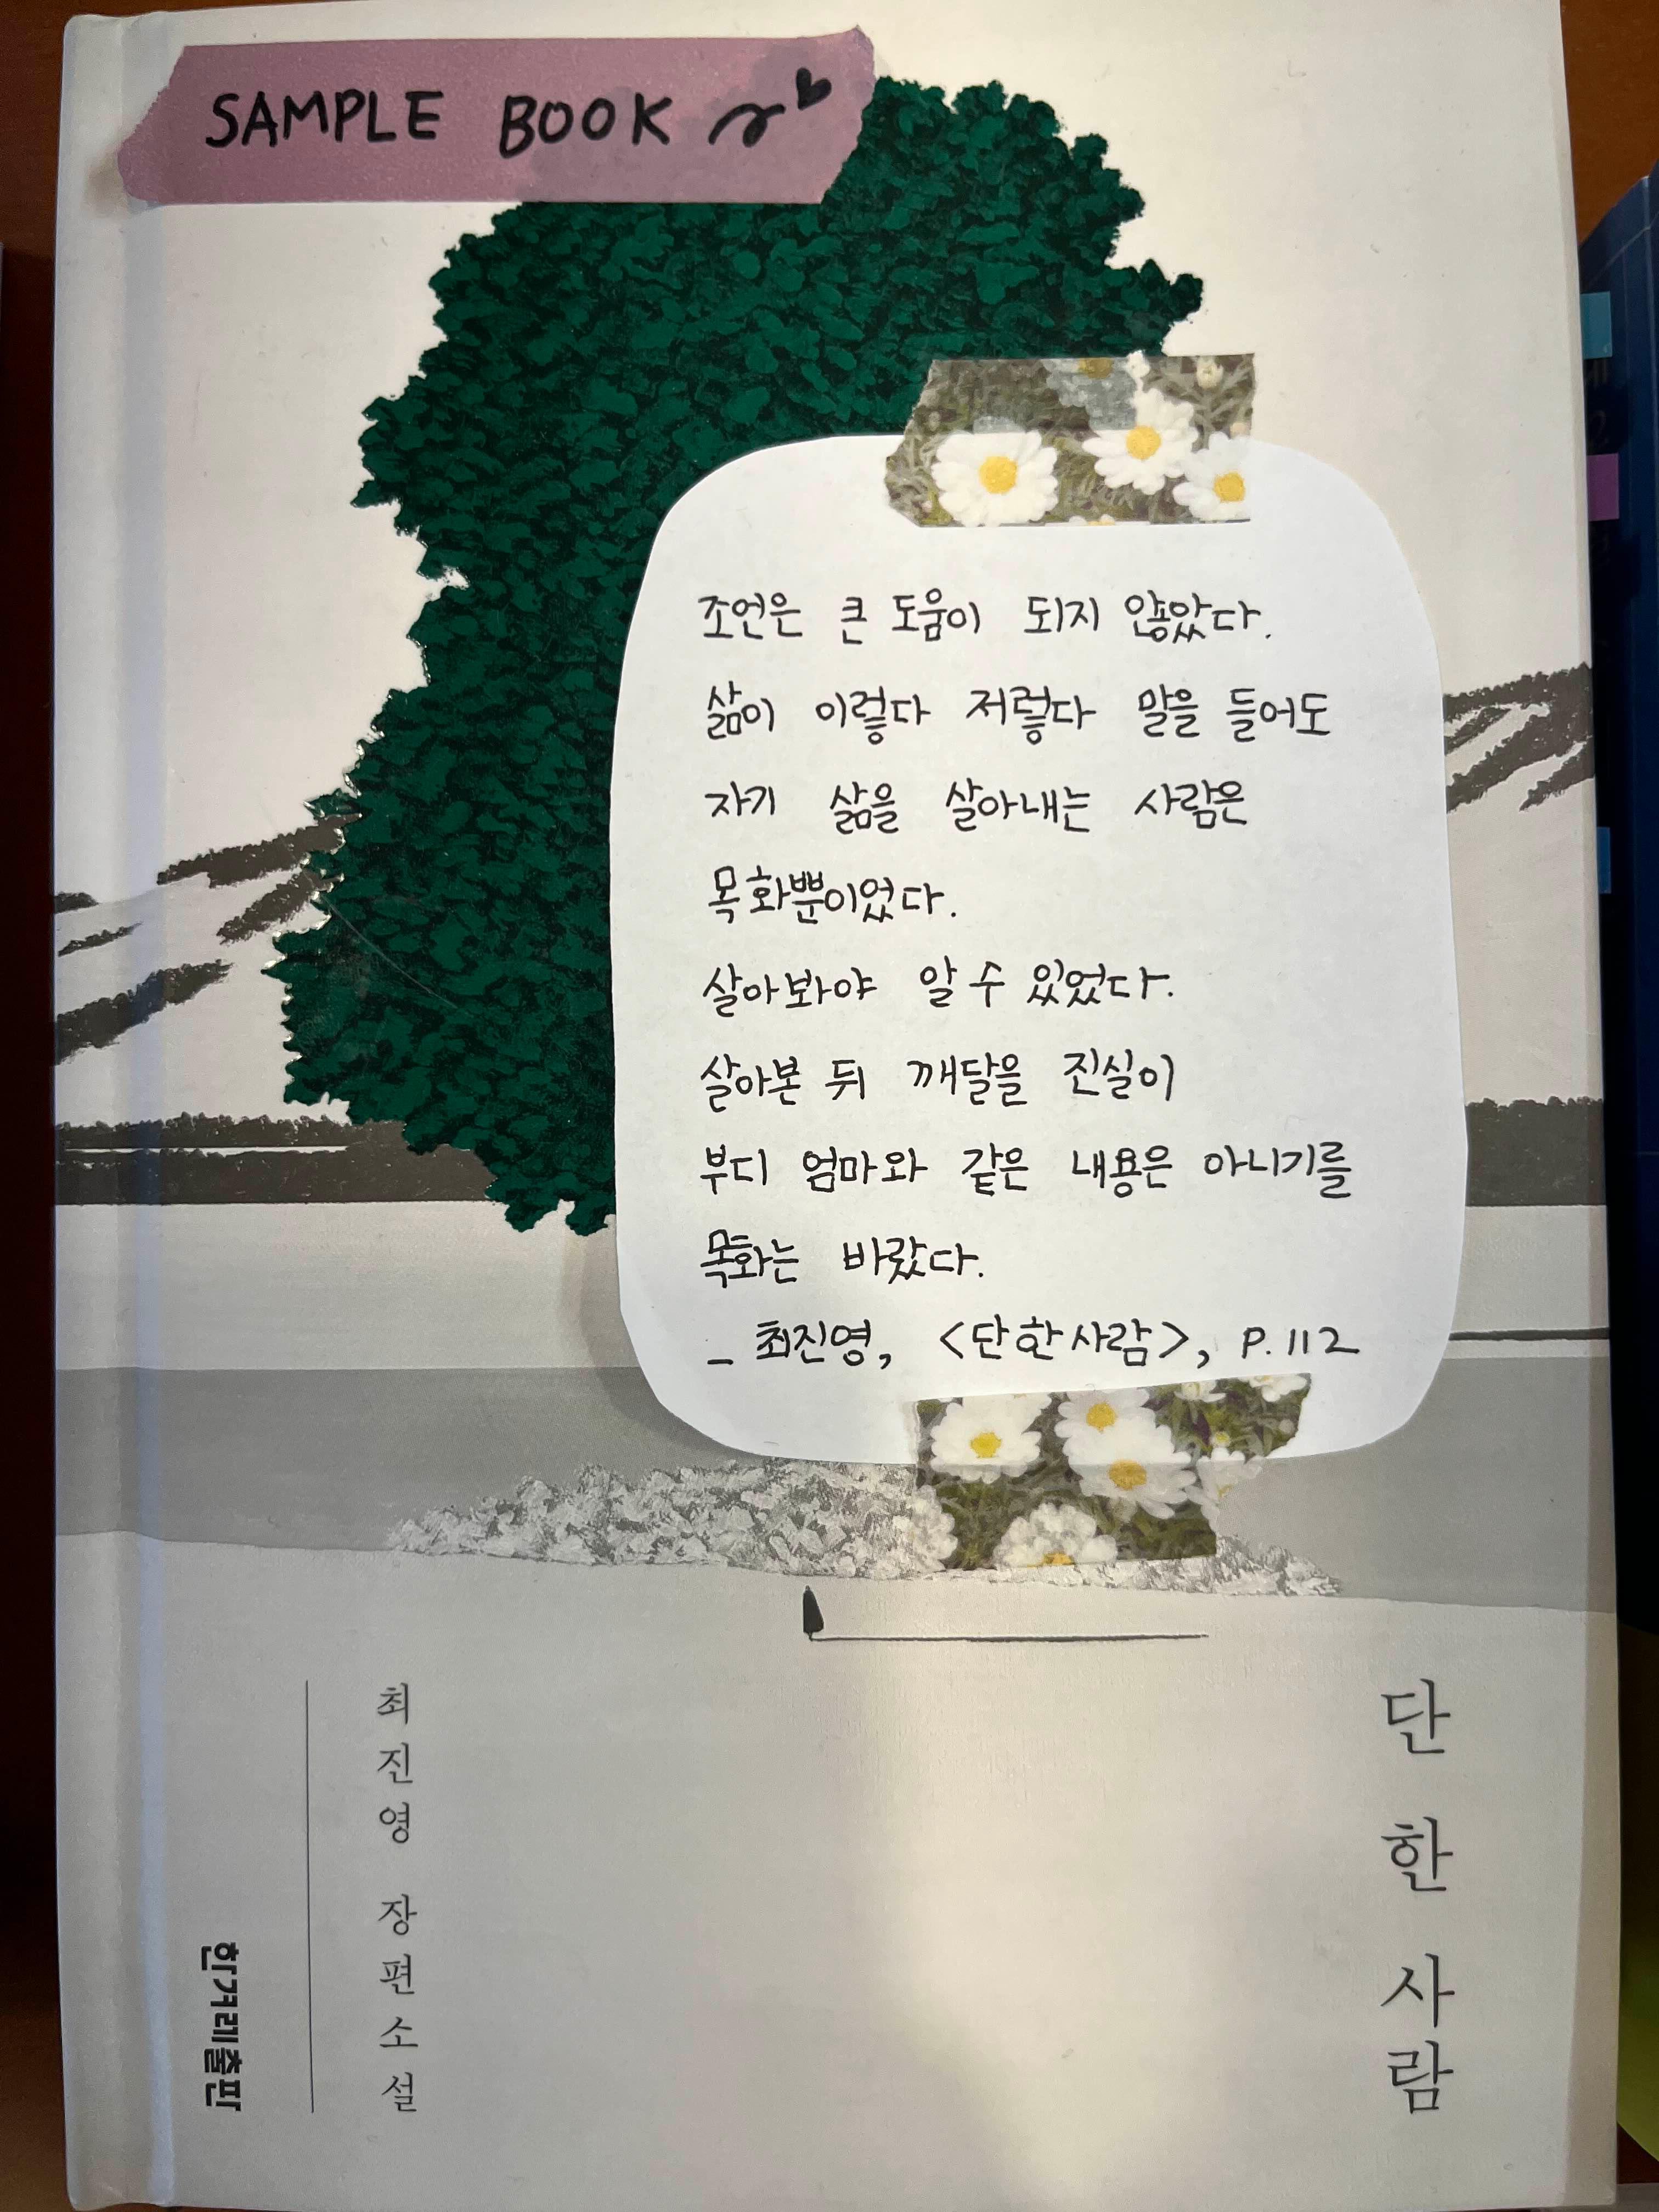 SAMPLE BOOK
조언은 큰 도움이 되지 않았다.
삶이 이렇다 저렇다 말을 들어도
자기 삶을 살아내는 사람은
목화뿐이었다.
살아봐야 알 수 있었다.
살아본 뒤 깨달을 진실이
부디 엄마와 같은 내용은 아니기를
목화는 바랐다.
_ 최진영, <단 한 사람>, P.112
단 한 사람
최진영 장편소설
한겨레출판